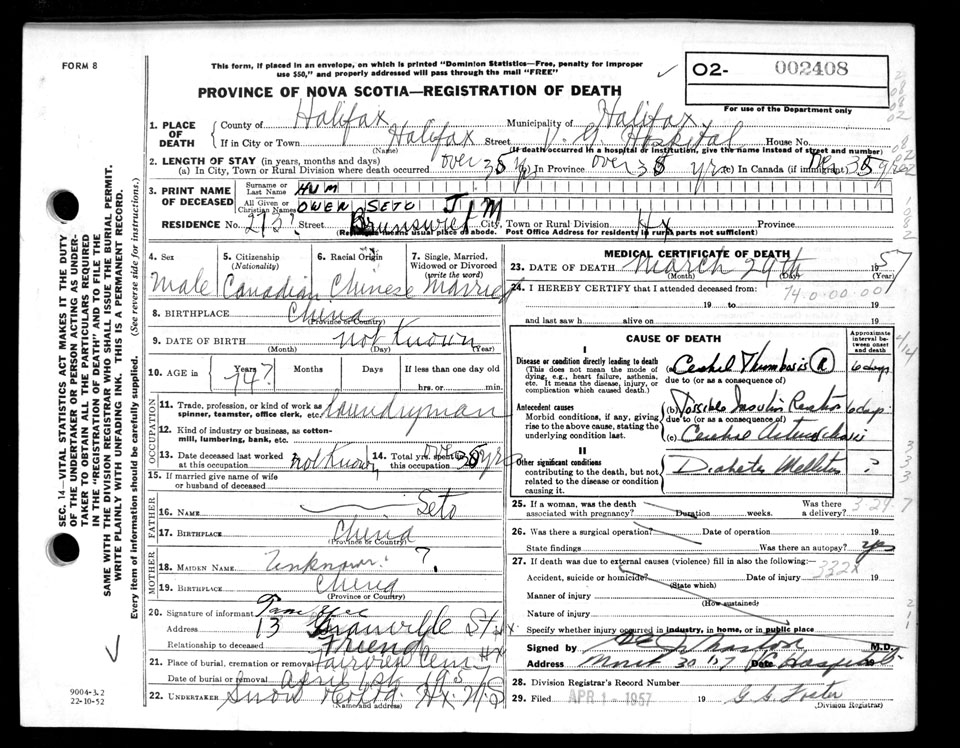 FORM 8
This form, if placed in an envelope, on which is printed "Dominion Statistics—Free, penalty for improper
use $50," and properly addressed will pass through the mail "FREE"
O2- 002408
For use of the Department only
PROVINCE OF NOVA SCOTIA—REGISTRATION OF DEATH
1. PLACE OF DEATH
County of Halifax Municipality of Halifax
If in City or Town Halifax Street V. G. Hospital House No.
(Name) (If death occurred in a hospital or institution, give the name instead of street and number)
2. LENGTH OF STAY (in years, months and days)
(a) In City, Town or Rural Division where death occurred over 35 y In Province over 35 yr (c) In Canada (if immigrant) 35
3. PRINT NAME OF DECEASED
Surname or Last Name HUM
All Given or Christian Names OWEN SETO
RESIDENCE No. Street Brunswick City, Town or Rural Division Hx Province
(Residence means usual place of abode. Post Office Address for residents in rural parts not sufficient)
4. Sex
Male
5. Citizenship
(Nationality)
Canadian
6. Racial Origin
Chinese
7. Single, Married, Widowed or Divorced
(write the word)
Married
8. BIRTHPLACE China
(Province or Country)
9. DATE OF BIRTH not Known
(Month) (Day) (Year)
10. AGE in Years Months Days If less than one day old
74? hrs. or min.
OCCUPATION
11. Trade, profession, or kind of work as
spinner, teamster, office clerk, etc. laundryman
12. Kind of industry or business, as cotton-
mill, lumbering, bank, etc.
13. Date deceased last worked
at this occupation not Known
14. Total yrs. spent in
this occupation 35 yrs
15. If married give name of wife
or husband of deceased
FATHER
16. NAME Seto
17. BIRTHPLACE China
(Province or Country)
MOTHER
18. MAIDEN NAME Unknown ?
19. BIRTHPLACE China
(Province or Country)
20. Signature of informant
Address 13 Granville St Hx
Relationship to deceased Friend
21. Place of burial, cremation or removal Fairview Cem Hx
Date of burial or removal April 195
22. UNDERTAKER Snow Hx N.S
(Name and address)
MEDICAL CERTIFICATE OF DEATH
23. DATE OF DEATH March 29th 1957
(Month) (Day) (Year)
24. I HEREBY CERTIFY that I attended deceased from:
740.00.00
19 to 19
and last saw h alive on 19
CAUSE OF DEATH
Approximate interval between onset and death
I
Disease or condition directly leading to death
(This does not mean the mode of
dying, e.g., heart failure, asthenia,
etc. It means the disease, injury, or
complication which caused death.)
(a) Cerebral Thrombosis 6 days
due to (or as a consequence of)
Antecedent causes
Morbid conditions, if any, giving
rise to the above cause, stating the
underlying condition last.
(b) Possible Insulin Reaction 6 days
due to (or as a consequence of)
(c) Cerebral
II
Other significant conditions
contributing to the death, but not
related to the disease or condition
causing it.
Diabetes Mellitus ?
25. If a woman, was the death
associated with pregnancy? Duration weeks. Was there a delivery?
26. Was there a surgical operation? Date of operation 19
State findings Was there an autopsy? yes
27. If death was due to external causes (violence) fill in also the following:
Accident, suicide or homicide? Date of injury 19
332X
(State which)
Manner of injury
(How sustained)
Nature of injury
Specify whether injury occurred in industry, in home, or in public place
Signed by M.D.
Address March 30 '57 Hospital
28. Division Registrar's Record Number
29. Filed APR 1 - 1957 19 G. S. Foster
(Division Registrar)
SEC. 14—VITAL STATISTICS ACT MAKES IT THE DUTY
OF THE UNDERTAKER OR PERSON ACTING AS UNDER-
TAKER TO OBTAIN ALL THE PARTICULARS REQUIRED
IN THE "REGISTRATION OF DEATH" AND TO FILE THE
SAME WITH THE DIVISION REGISTRAR WHO SHALL ISSUE THE BURIAL PERMIT.
WRITE PLAINLY WITH UNFADING INK. THIS IS A PERMANENT RECORD.
Every item of information should be carefully supplied. (See reverse side for instructions.)
9004-3.2
22-10-52